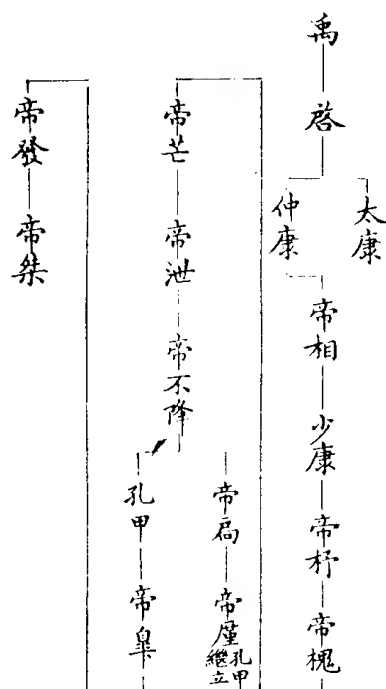 禹
啓
太康
仲康
帝相
少康
帝杼
帝槐
帝芒
帝泄
帝不降
帝扃
帝廑
孔甲繼立
孔甲
帝皐
帝發
帝桀